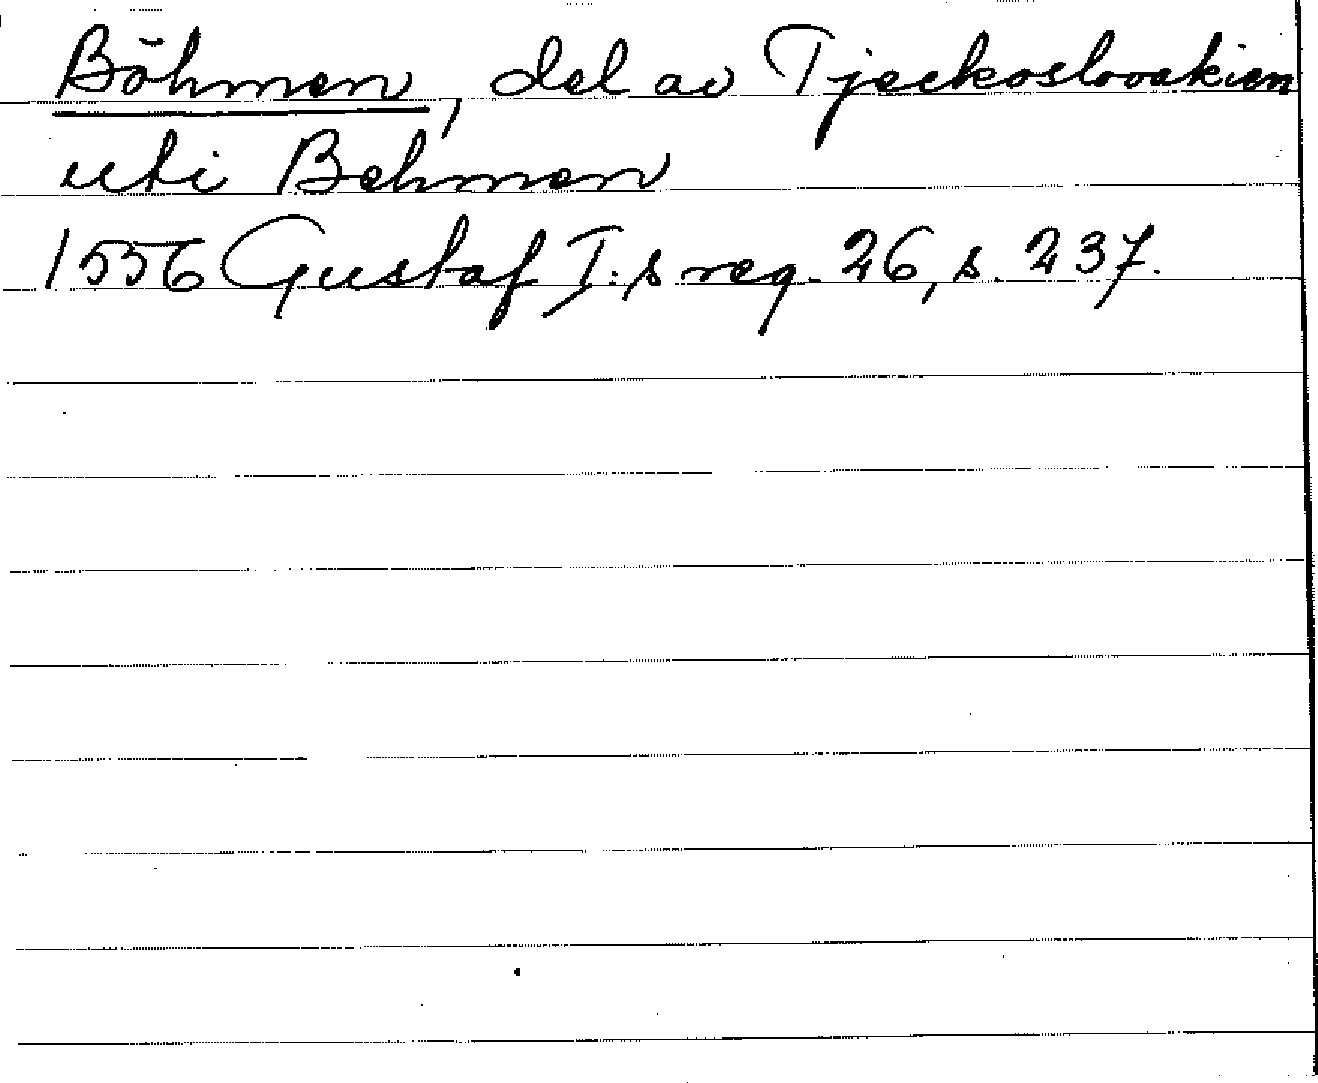 Böhmen, del av Tjeckoslovakien
uti Behmen
1556 Gustaf I:s reg. 26, s. 237.